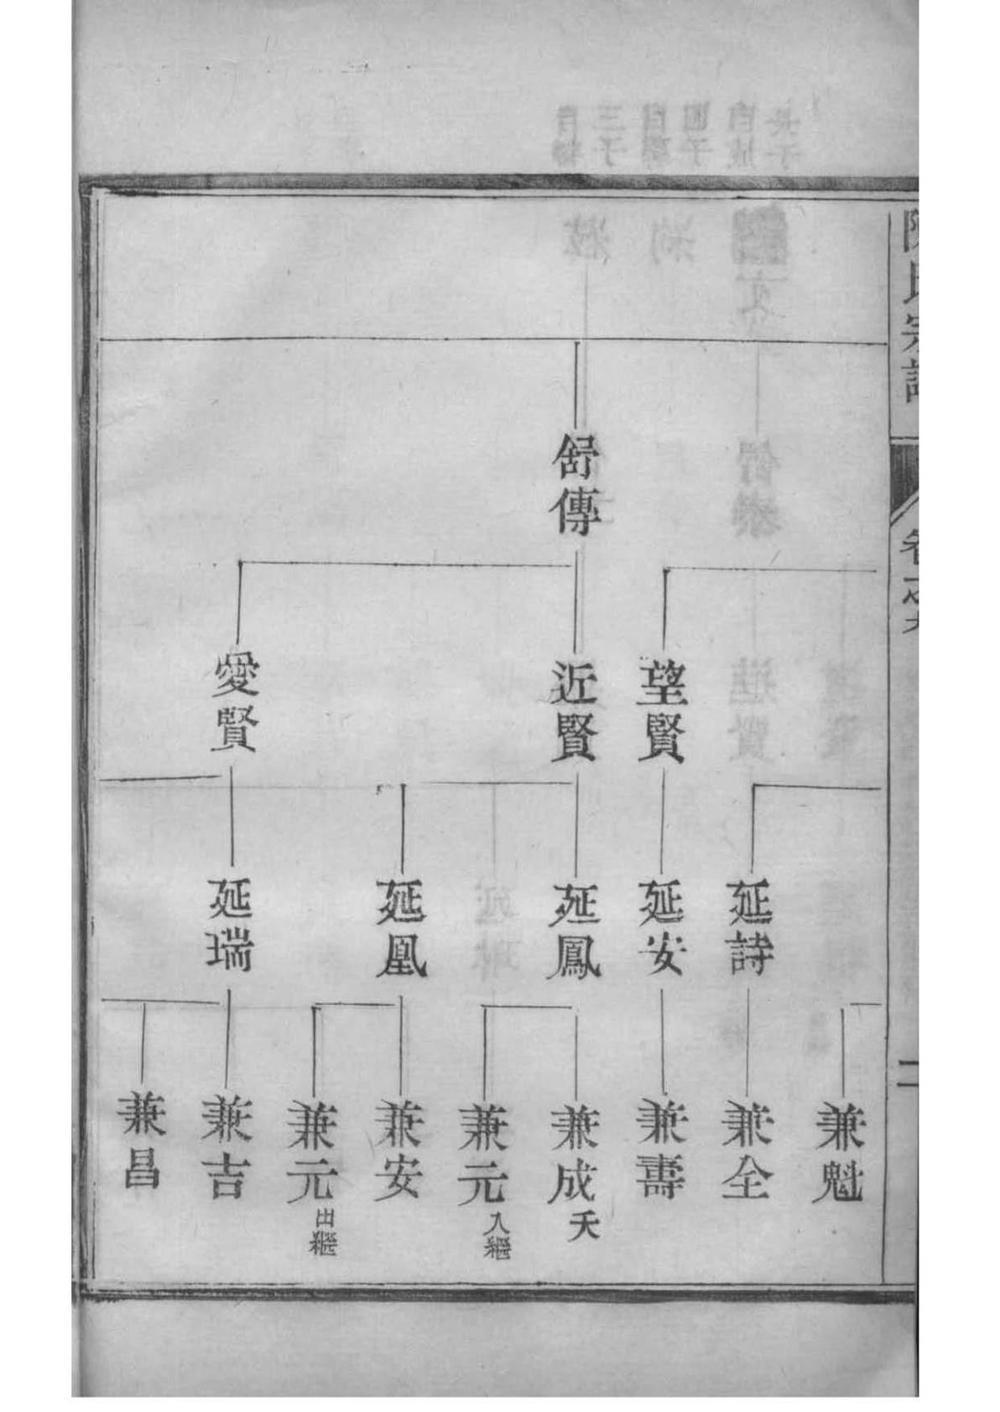 陳氏宗譜
卷之六
二
舒傳
望賢
近賢
愛賢
延詩
延安
延鳳
延凰
延瑞
兼魁
兼全
兼壽
兼成夭
兼元入繼
兼安
兼元出繼
兼吉
兼昌